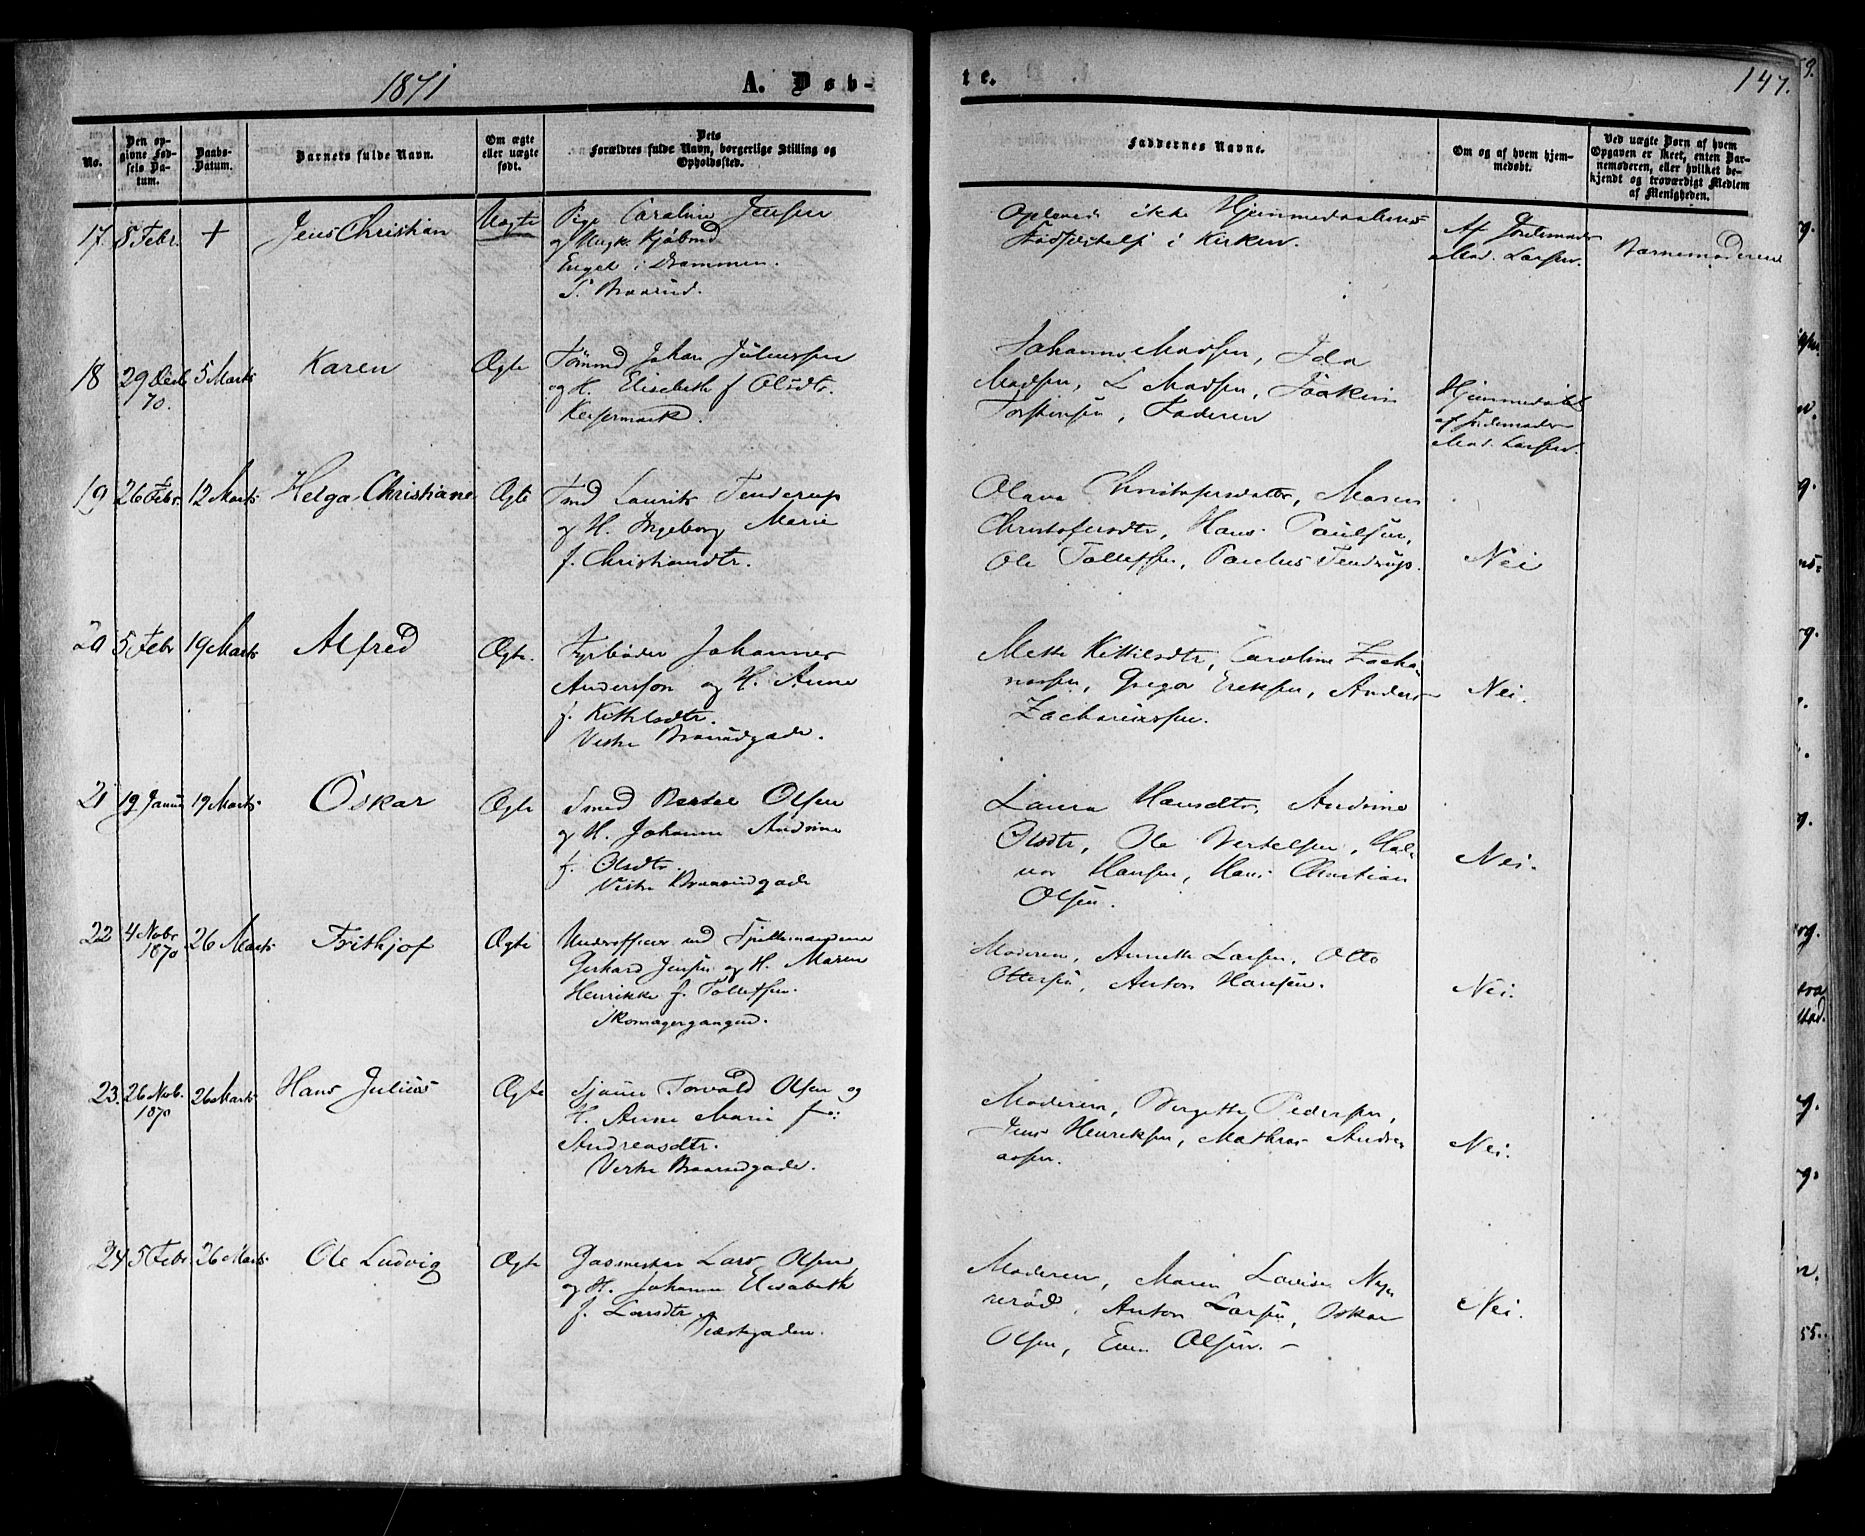 1871
A. Døb-
te.
147.
No.
Den op-
givne Fød-
sels Da-
tum.
Daabs-
Datum.
Barnets fulde Navn.
Om ægte
eller uægte
født.
Dets
Forældres fulde Navn, borgerlige Stilling og
Opholdssted.
Faddernes Navne.
Om og af hvem hjem-
medøbt.
Ved uægte Børn af hvem
Opgaven er skeet, enten Bar-
nemoderen, eller hvilket be-
kjendt og troværdigt Medlem
af Menigheden.
17 8 Febr. + Jens Christian Uægte
Pige Caroline Jensen
og Ungk.
Engel i Drammen.
S. Braarud.
Oplevede ikke Hjemmedaabens
Stadfæstelse i Kirken.
Af Jordemoder
Mad. Larsen.
Barnemoderen
18 29 Decb. 70. 5 Marts Karen Ægte
Tømmd Johan Juliussen
og H. Elisabeth f. Olsdtr.
Keisermark.
Johannes Madsen, Ida
Madsen, L Madsen, Joakim
Torstensen, Faderen
Hjemmedøbt
af Jordemoder
Mad. Larsen.
19 26 Febr. 12 Marts Helga Christiane Ægte
Tmd Laurits Tenderup
og H. Ingeborg Marie
f. Christiansdtr.
Olava Christofersdatter, Maren
Christofersdtr, Hans Paulsen,
Ole Tollefsen, Paulus Tendrup.
Nei
20 5 Febr 19 Marts Alfred Ægte.
Fyrbøder Johannes
Andersson og H. Anne
f. Kittilsdtr.
Vestre Braarudgade.
Mette Kittilsdtr, Caroline Zacha-
riassen, Gregor Eriksen, Anders
Zachariassen.
Nei.
21 19 Januar 19 Marts Oskar Ægte
Smed Bertel Olsen
og H. Johanne Andrine
f. Olsdtr.
Vestre Braarudgade
Laura Hansdtr, Andrine
Olsdtr, Ole Bertelsen, Hal-
vor Hansen, Hans Christian
Olsen.
Nei.
22 4 Nobr 1870 26 Marts Frithjof Ægte
Underofficer ved Spillemændene
Gerhard Jensen og H. Maren
Henrikke f. Tollefsen.
Skomagergangen.
Moderen, Annette Larsen, Otto
Ottersen, Anton Hansen.
Nei.
23. 26 Nob. 1870 26 Marts Hans Julius Ægte
Sjømd Torvald Olsen og
H. Anne Marie f.
Andreasdtr.
Vestre Braarudgade.
Moderen, Birgitte Pedersen,
Jens Henriksen, Mathias Andre-
assen.
Nei.
24 5 Febr. 26 Marts Ole Ludvig Ægte
Gasmester Lars Olsen
og H. Johanne Elisabeth
f. Larsdtr.
Præstegaden.
Moderen, Maren Lovise Ny-
rerød, Anton Larsen, Oskar
Olsen, Even Olsen. -
Nei.